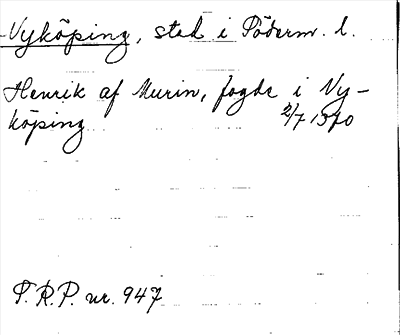 Nyköping, stad i Söderm. l.
Henrik af Murin, fogde i Ny-
köping 2/7 1370
S.R.P. nr. 947